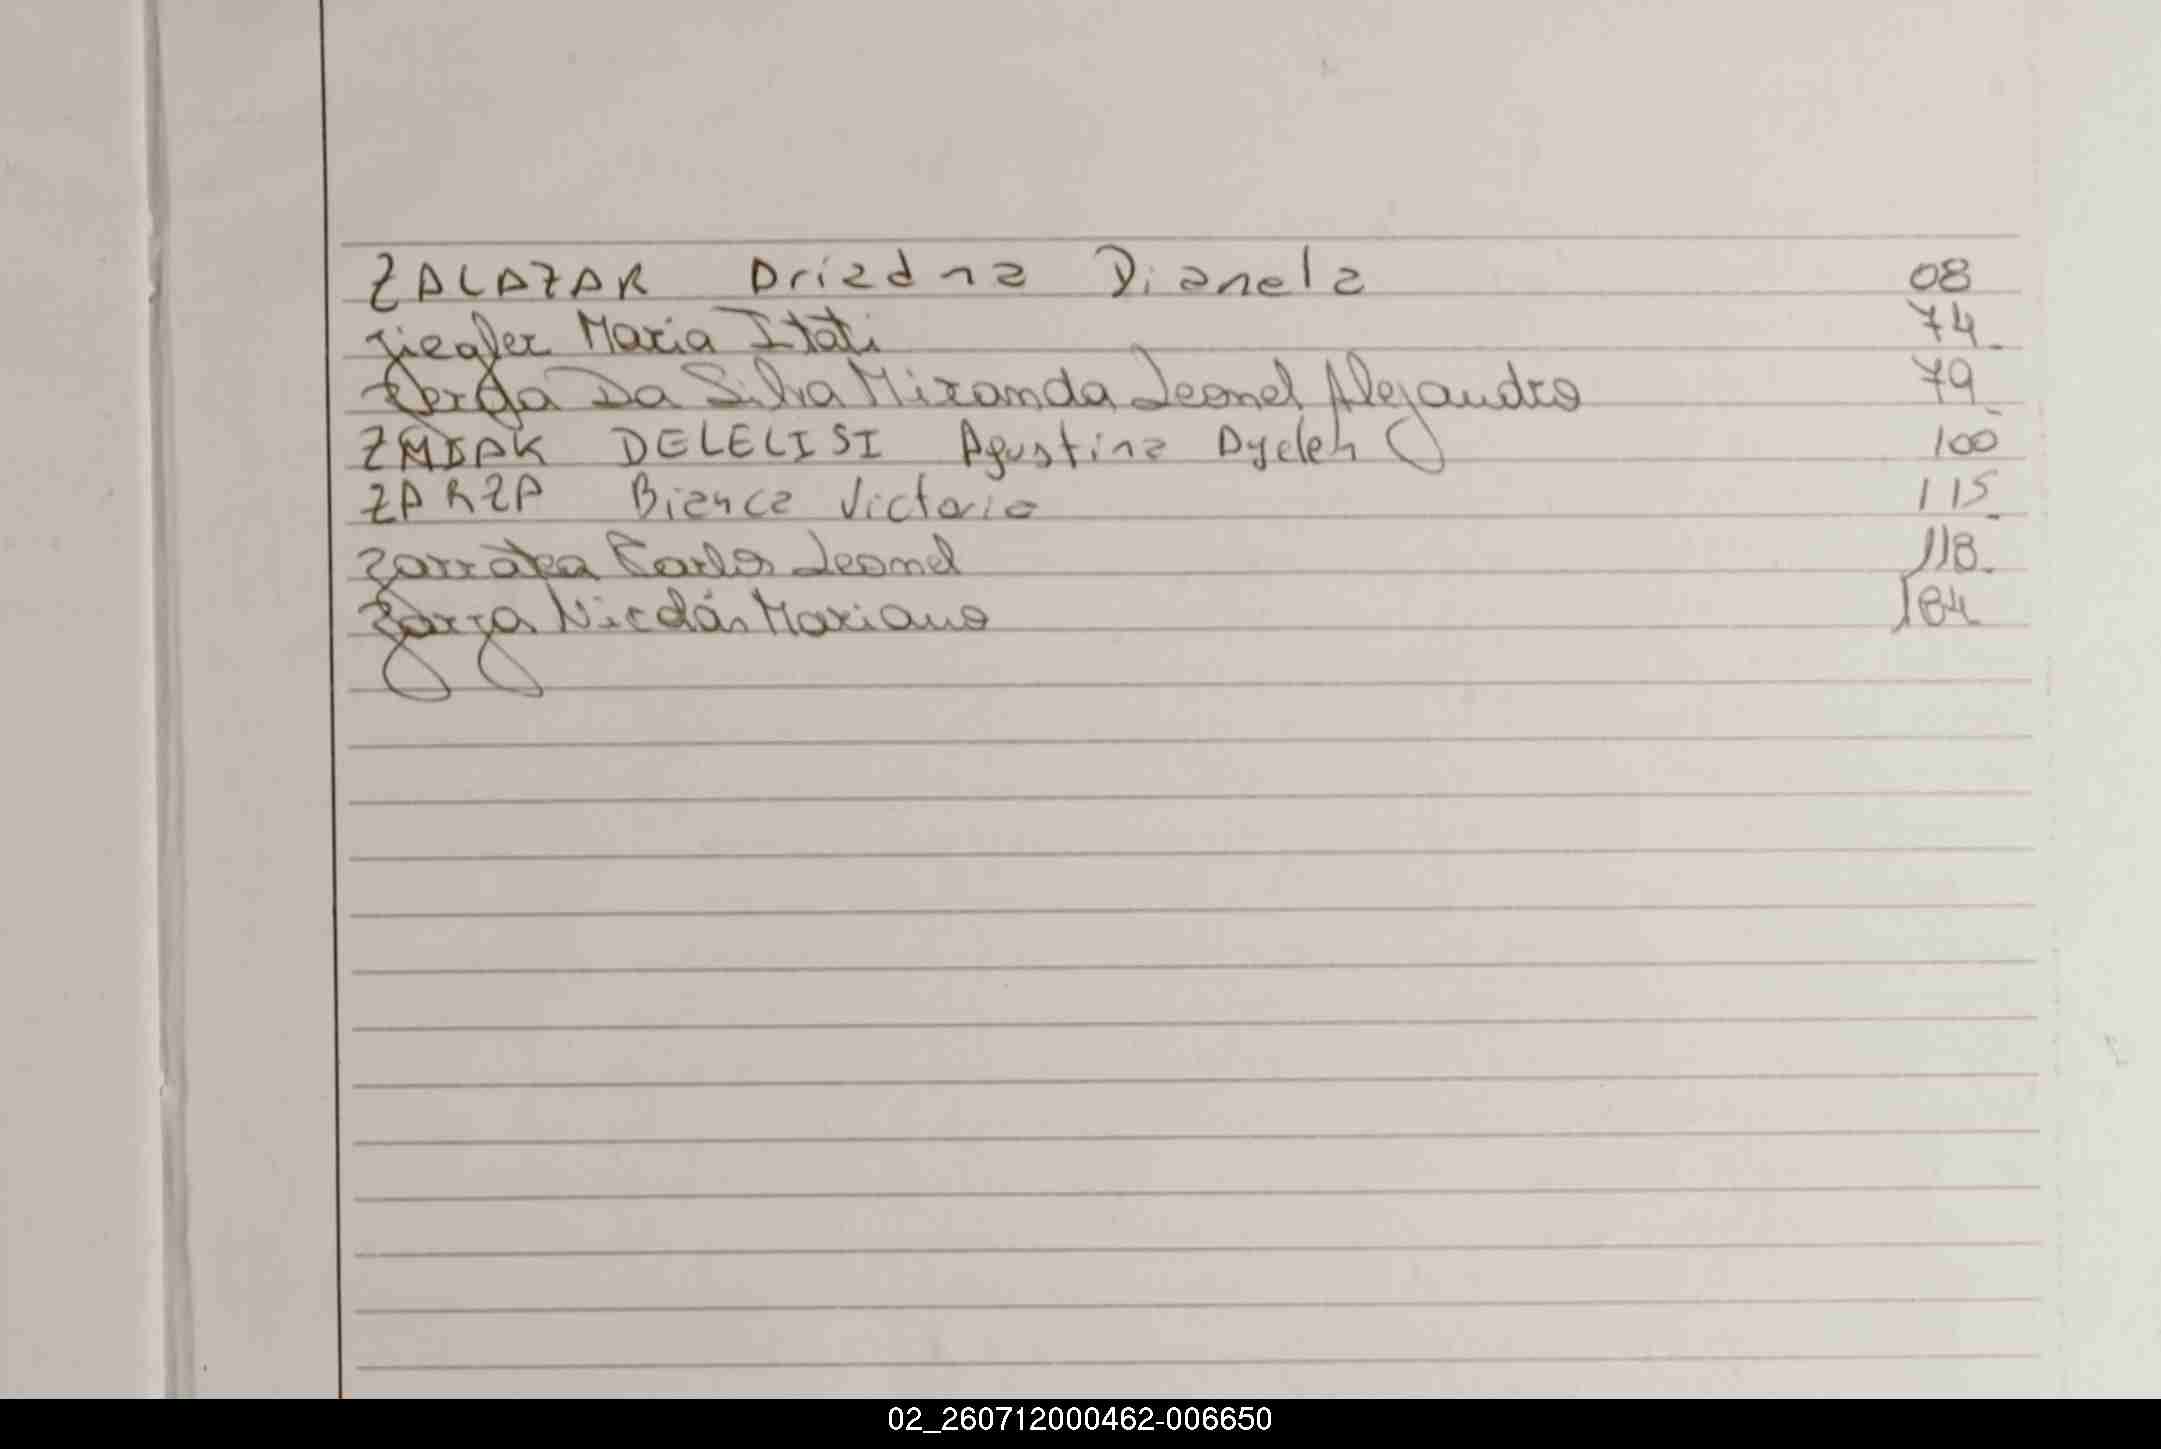 ZALAZAR Ariadna Dianela 08
Ziegler Maria Itati 74
Zerga Da Silva Miranda Leonel Alejandro 79
ZMIAK DELELISI Agustina Aycleh 100
ZARZA Bianca Victoria 115
Zarratea Carlos Leonel 118
Zarza Nicolás Mariano 184
02_260712000462-006650